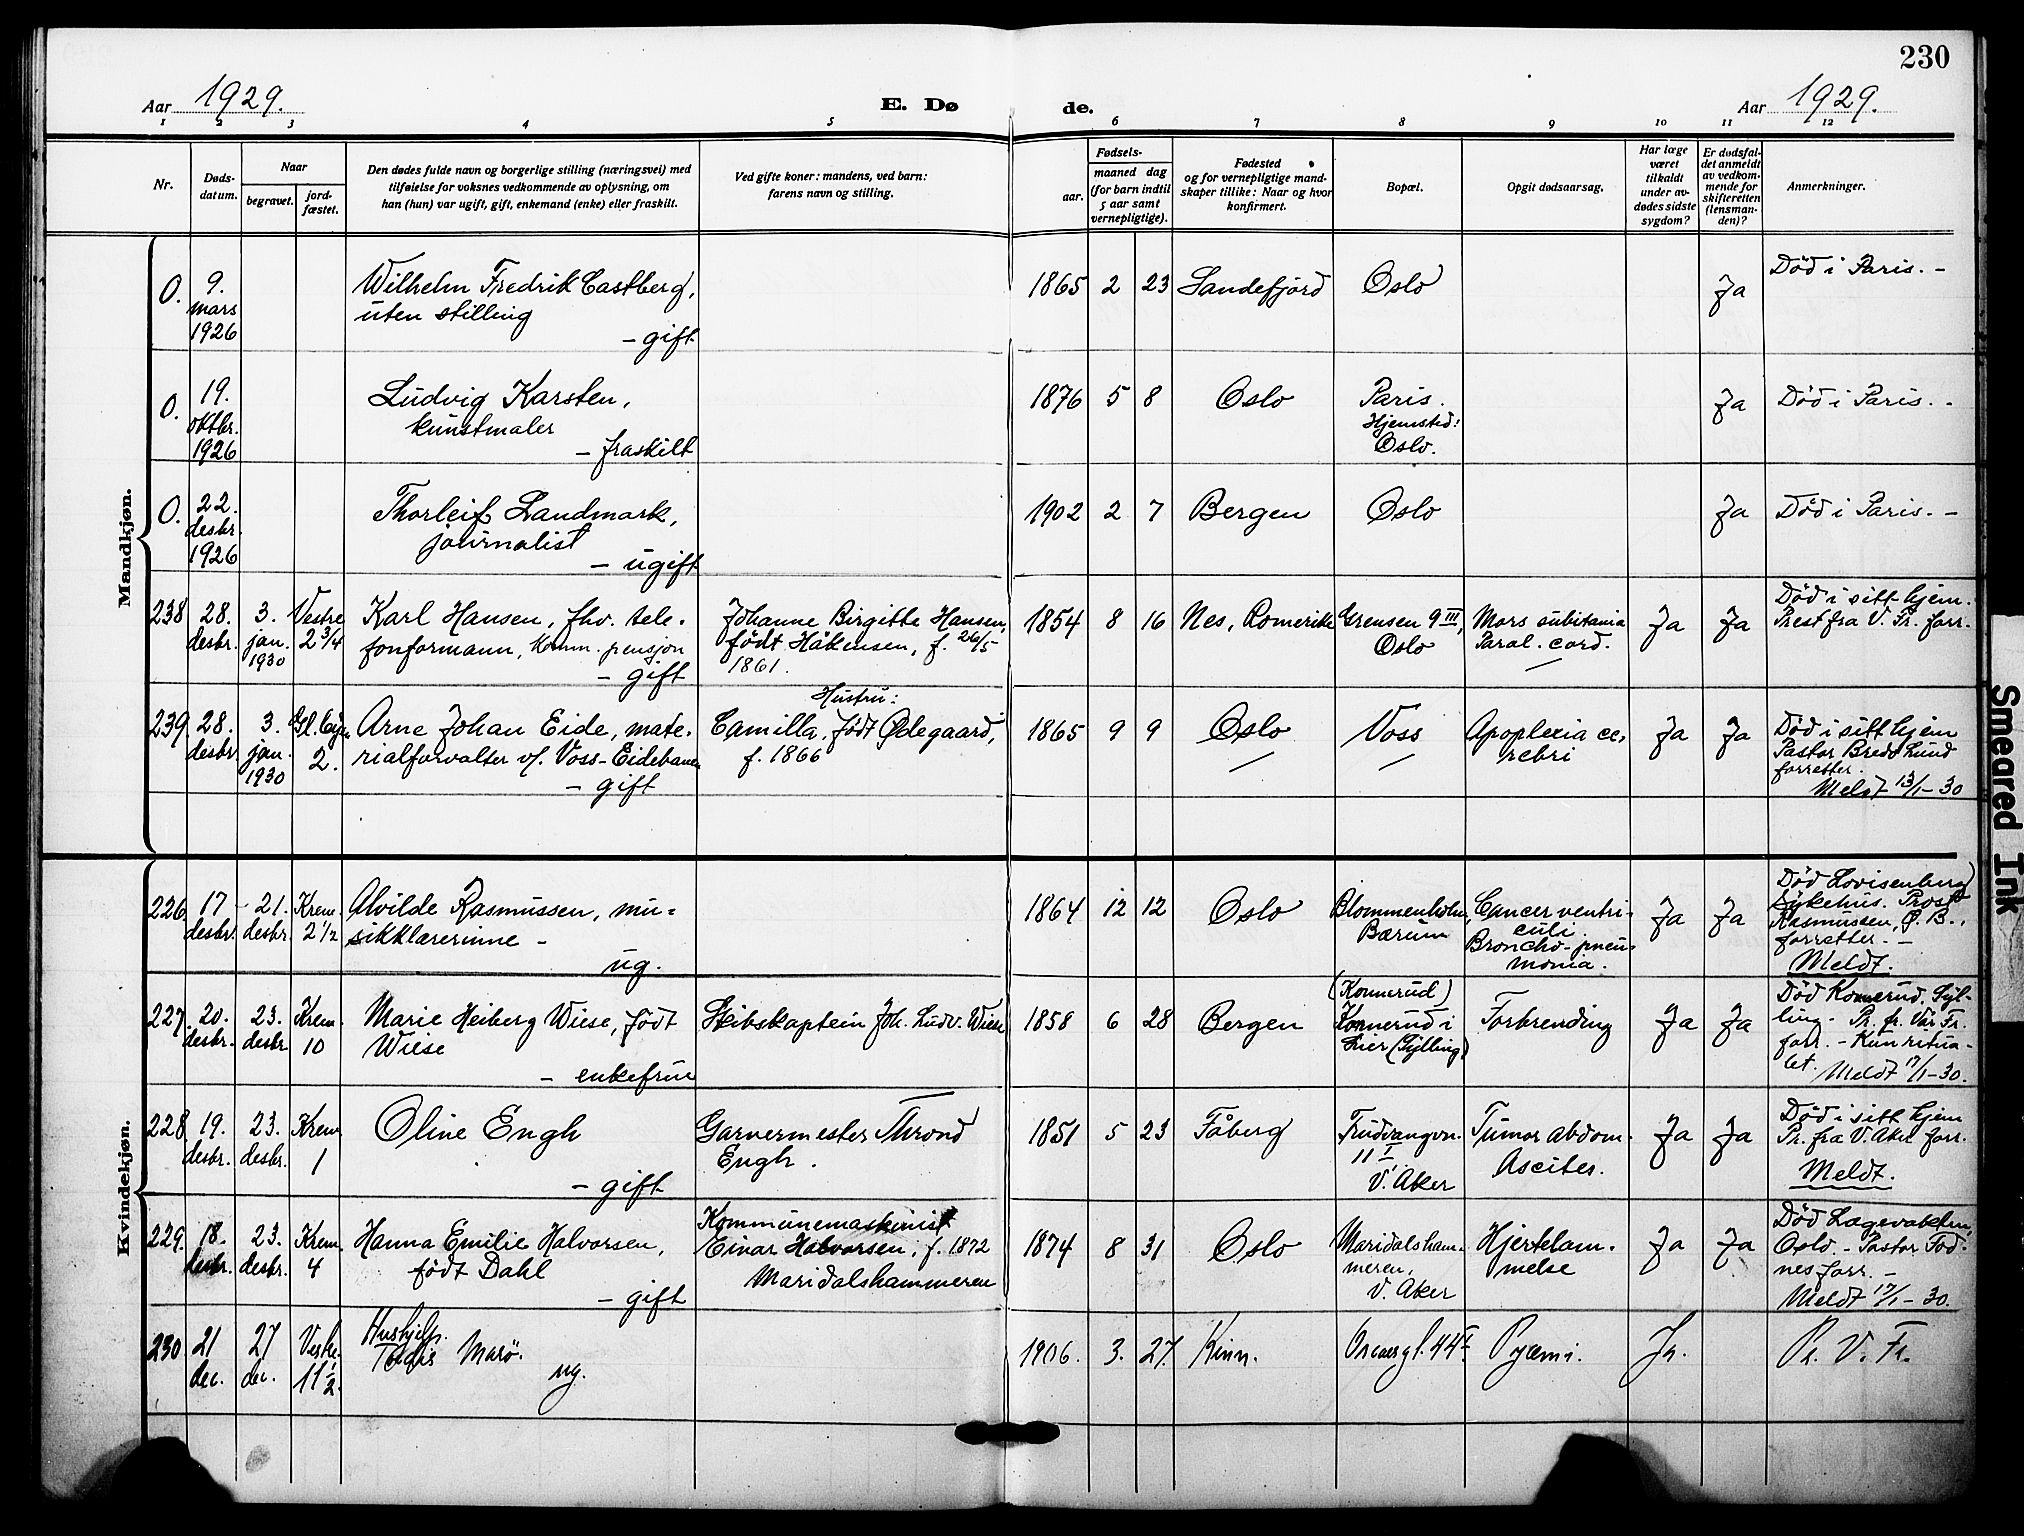 230
Aar 1929. E. Dø de. Aar 1929.
1 2 3 4 5 6 7 8 9 10 11 12
Nr.
Døds-
datum.
Naar
begravet.
jord-
fæstet.
Den dødes fulde navn og borgerlige stilling (næringsvei) med
tilføielse for voksnes vedkommende av oplysning, om
han (hun) var ugift, gift, enkemand (enke) eller fraskilt.
Ved gifte koner: mandens, ved barn:
farens navn og stilling.
Fødsels-
aar.
maaned dag
(for barn indtil
5 aar samt
vernepligtige).
Fødested
og for vernepligtige mand-
skaper tillike: Naar og hvor
konfirmert.
Bopæl.
Opgit dødsaarsag.
Har læge
været
tilkaldt
under av-
dødes sidste
sygdom?
Er dødsfal-
det anmeldt
av vedkom-
mende for
skifteretten
(lensman-
den)?
Anmerkninger.
Mandkjøn.
O.
9.
mars
1926
Wilhelm Fredrik Castberg,
uten stilling
- gift
1865 2 23 Sandefjord
Oslo
Ja
Död i Paris. -
O.
19.
oktbr.
1926
Ludvig Karsten,
kunstmaler
- fraskilt
1876 5 8 Oslo
Paris.
Hjemsted:
Oslo.
Ja
Död i Paris. -
O.
22.
desbr.
1926
Thorleif Landmark,
journalist
- ugift
1902 2 7 Bergen
Oslo
Ja
Död i Paris. -
238
28.
desbr.
3.
jan.
1930
Vestre
2 3/4
Karl Hansen, fhv. tele-
fonformann, komm. pensjon
- gift
Johanne Birgitte Hansen,
født Håkensen, f. 26/5
1861.
1854 8 16 Nes, Romerike
Grensen 9 III,
Oslo
Mors subitania
Paral. cord.
Ja
Ja
Död i sitt hjem.
Prest fra V. Fr. forr.
239
28.
desbr.
3.
jan.
1930
2.
Arne Johan Eide, mate-
rialforvalter v/. Voss-Eidebanen
- gift
Hustru:
Camilla, født Ødegaard,
f. 1866
1865 9 9 Oslo
Voss
Apoplexia ce-
rebri
Ja
Ja
Död i sitt hjem
Pastor Bredo Lund
forretter.
Meldt 13/1-30
Kvindekjøn.
226
17
desbr.
21.
desbr.
Krem.
2 1/2
Alvilde Rasmussen, mu-
sikklærerinne -
ug.
1864 12 12 Oslo
Blommenholm,
Bærum
Cancer ventri-
culi.
Broncho-pneu-
monia.
Ja
Ja
Död Lovisenberg
Sykehus. Prost
Rasmussen, Ø. B.,
forretter. -
Meldt.
227
20.
desbr.
23.
desbr
Krem.
10
Marie Heiberg Wiese, født
Wiese
- enkefrue
Skibskaptein Joh. Ludv. Wiese
1858 6 28 Bergen
(Konnerud)
Konnerud i
Lier (Sylling)
Forbrending
Ja
Ja
Död Konnerud. Syl-
ling. - Pr. fr. Vår Fr.
forr. - Kun ritua-
let. Meldt 17/1-30.
228
19.
desbr.
23.
desbr.
Krem
1
Oline Engh
- gift
Garvermester Thrond
Engh.
1851 5 23 Fåberg
Trudvangvn.
11 I
V. Aker
Tumor abdom.
Ascites.
Ja
Ja
Död i sitt hjem
Pr. fra V. Aker forr.
Meldt.
229.
18.
desbr.
23.
desbr.
Krem.
4
Hanna Emilie Halvorsen,
født Dahl
- gift
Kommunemaskinist
Einar Halvorsen, f. 1872
Maridalshammeren
1874 8 31 Oslo
Maridalsham-
meren,
V. Aker
Hjertelam-
melse
Ja
Ja
Död Lægevakten,
Oslo. - Pastor Tod-
nes forr. -
Meldt 17/1-30.
230
21
dec.
27
dec.
Vestre.
11 1/2.
Hushjelp.
Marö.
ug.
1906. 3. 27. Kinn.
44 I.
Pyæmi.
Ja.
Pr. V. Fr.
Smeared Ink